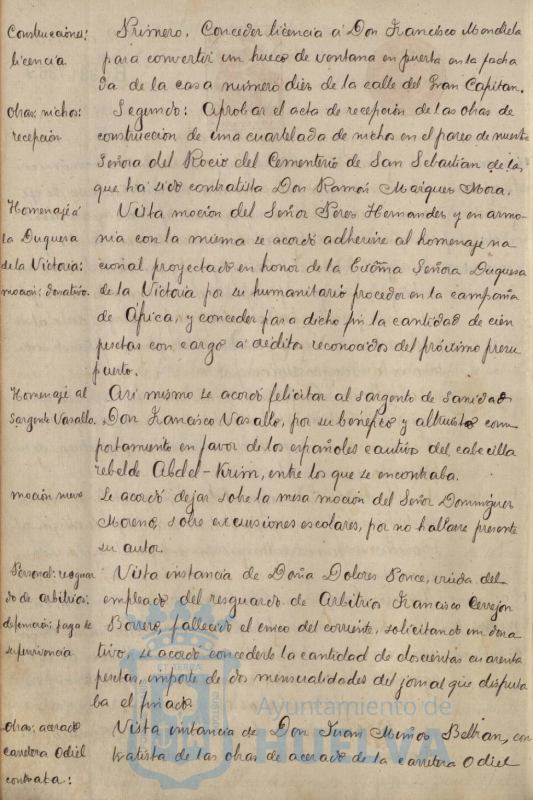 Construcciones: Primero. Conceder licencia á Don Francisco Mondiela
licencia para convertir un hueco de ventana en puerta en la facha
da de la casa número diez de la calle del Gran Capitan.
Obras: nichos: Segundo: Aprobar el acta de recepción de las obras de
recepción construccion de una cuartelada de nichos en el paseo de nuestr
Señora del Rocio del Cementerio de San Sebastian de las
que ha sido contratista Don Ramón Maiques Mora.
Homenaje á Vista moción del Señor Peres Hernandes y en armo
la Duquesa nia con la misma se acordó adherirse al homenaje na
de la Victoria: cional proyectado en honor de la Excma Señora Duquesa
mocion: donativo. de la Victoria por su humanitario proceder en la campaña
de África, y conceder para dicho fin la cantidad de cien
pesetas con cargo á créditos reconocidos del próximo presu
puesto.
Homenaje al Asi mismo se acordó felicitar al sargento de Sanidad
Sargento Vasallo. Don Francisco Vasallo, por su benéfico y altruista com
portamiento en favor de los españoles cautivos del cabecilla
rebelde Abdel-Krim, entre los que se encontraba.
mocion Se acordó dejar sobre la mesa moción del Señor Domínguez
Moreno, sobre excursiones escolares, por no hallarse presente
su autor.
Personal: resguar Vista instancia de Doña Dolores Ponce, viuda del
do de arbitrios: empleado del resguardo de Arbitrios Francisco Cerrejon
defunción: paga de Borrero, fallecido el cinco del corriente, solicitando un dona
supervivencia tivo, se acordó concederle la cantidad de doscientas cuarenta
pesetas, importe de dos mensualidades del jornal que disfruta
ba el finado.
Obras: acerado Vista instancia de Don Juan Muños Beltran, con
carretera Odiel tratista de las obras de acerado de la carretera Odiel
contrata:
Ayuntamiento de
HUELVA